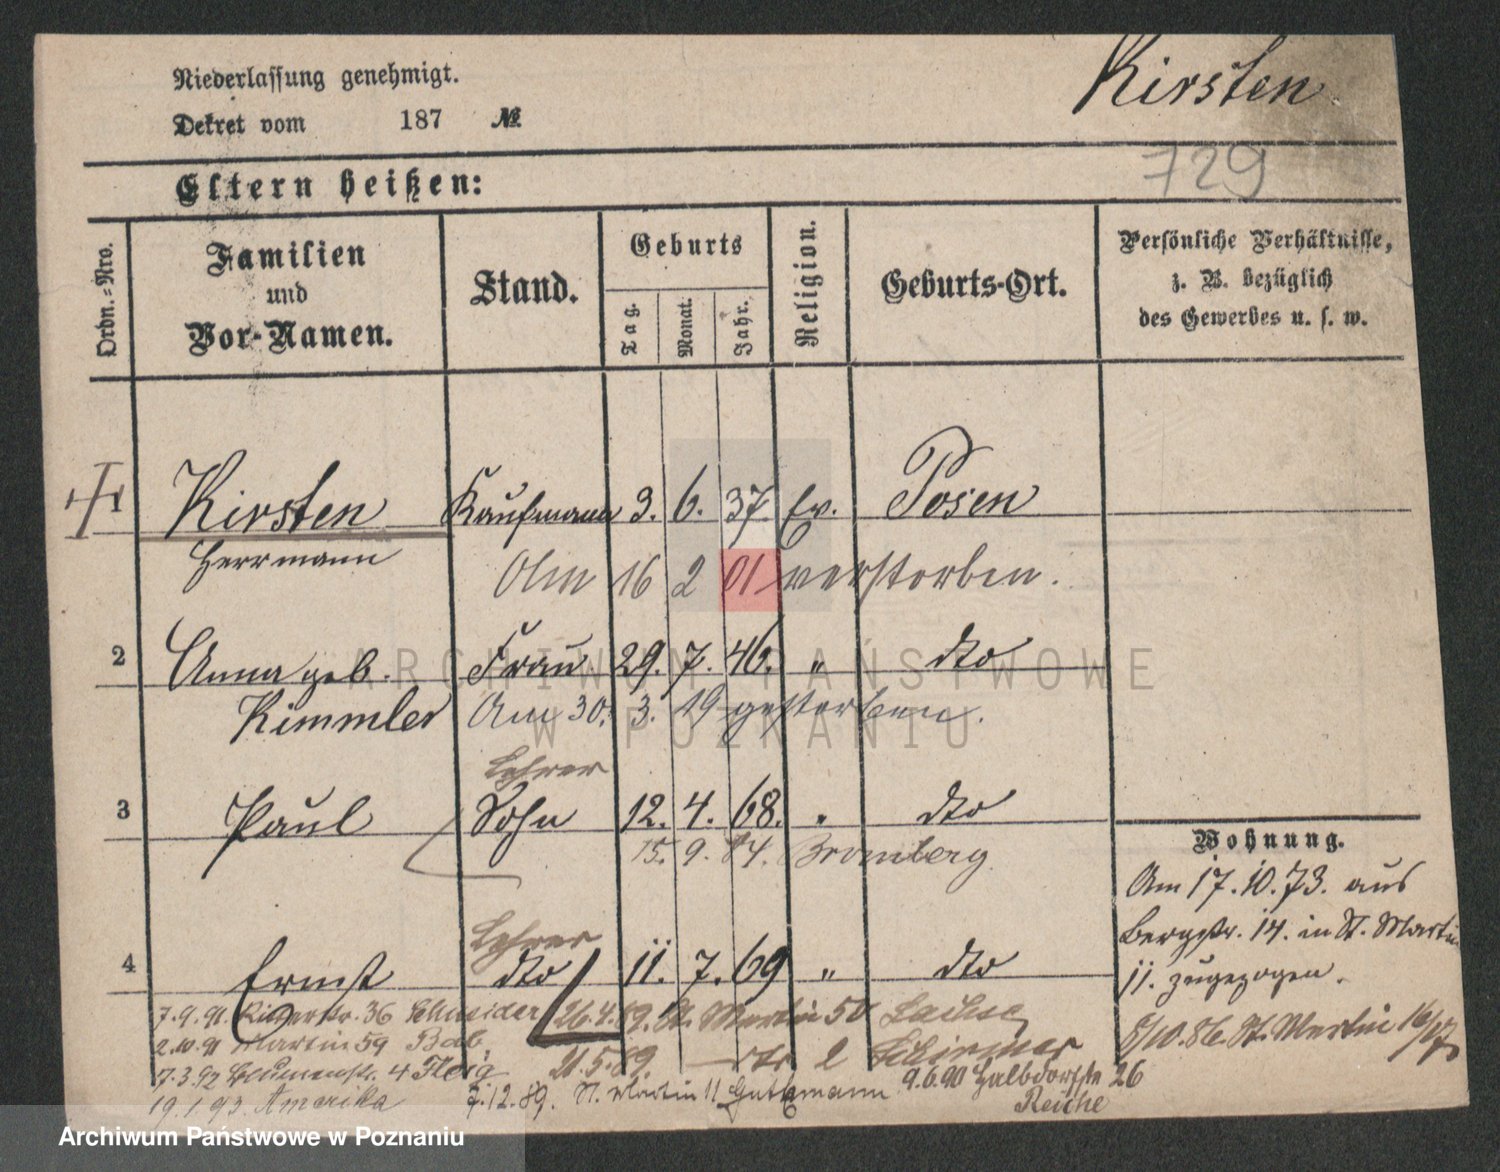 Kirsten
Niederlassung genehmigt.
Dekret vom 187 №
729
Eltern heißen:
Ordn.-Nro.
Familien und Vor-Namen.
Stand.
Geburts
Tag.
Monat.
Jahr.
Religion.
Geburts-Ort.
Persönliche Verhältnisse,
z. B. bezüglich
des Gewerbes u. s. w.
1 Kirsten Kaufmann 3. 6. 37. Ev. Posen
Herrmann
16 2 01 verstorben.
2 Anna geb. Frau 29. 7. 46. " dto
Kimmler Am 30. 3. 19 gestorben.
Lehrer
3 Paul Sohn 12. 4. 68. " dto
15. 9. 84. Bromberg
Wohnung.
Am 17.10.73. aus
Bergstr. 14. in St. Martin
11. zugezogen.
8/10.86. St. Martin
Lehrer
4 Ernst dto 11. 7. 69 " dto
7.9.91. Ritterstr. 36 Schneider 26.4.89. St. Martin 50 Sachse
2.10.91 Martin 59 Bab
21.5.89. dto 2 Schirmer
17.3.92 Blumenstr. 4
9.6.90 Halbdorfstr 26
Reiche
7.12.89. St. Martin 11 Guttmann
19.1.93. Amerika
ARCHIWUM PAŃSTWOWE
W POZNANIU
Archiwum Państwowe w Poznaniu